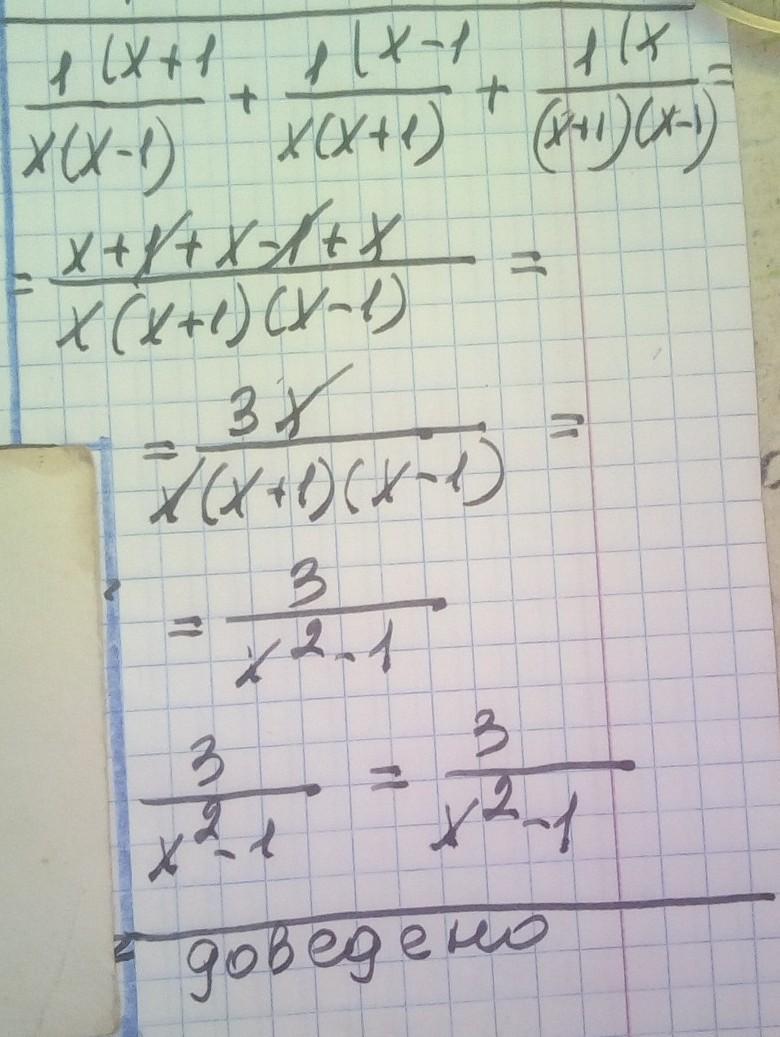 1 (x+1 / x(x-1) + 1 (x-1 / x(x+1) + 1 (x / (x+1)(x-1) =
= x+1+x-1+x / x(x+1)(x-1) =
= 3x / x(x+1)(x-1) =
= 3 / x²-1
3 / x²-1 = 3 / x²-1
доведено